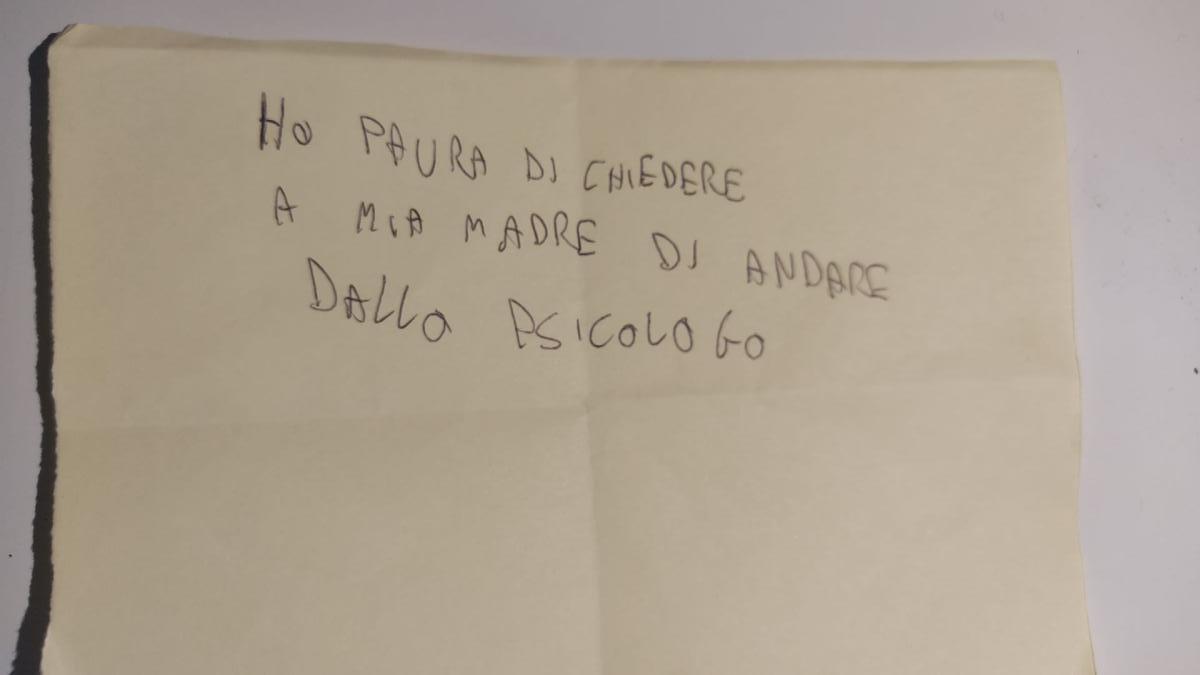 Ho PAURA DI CHIEDERE
A MIA MADRE DI ANDARE
DALLO PSICOLOGO